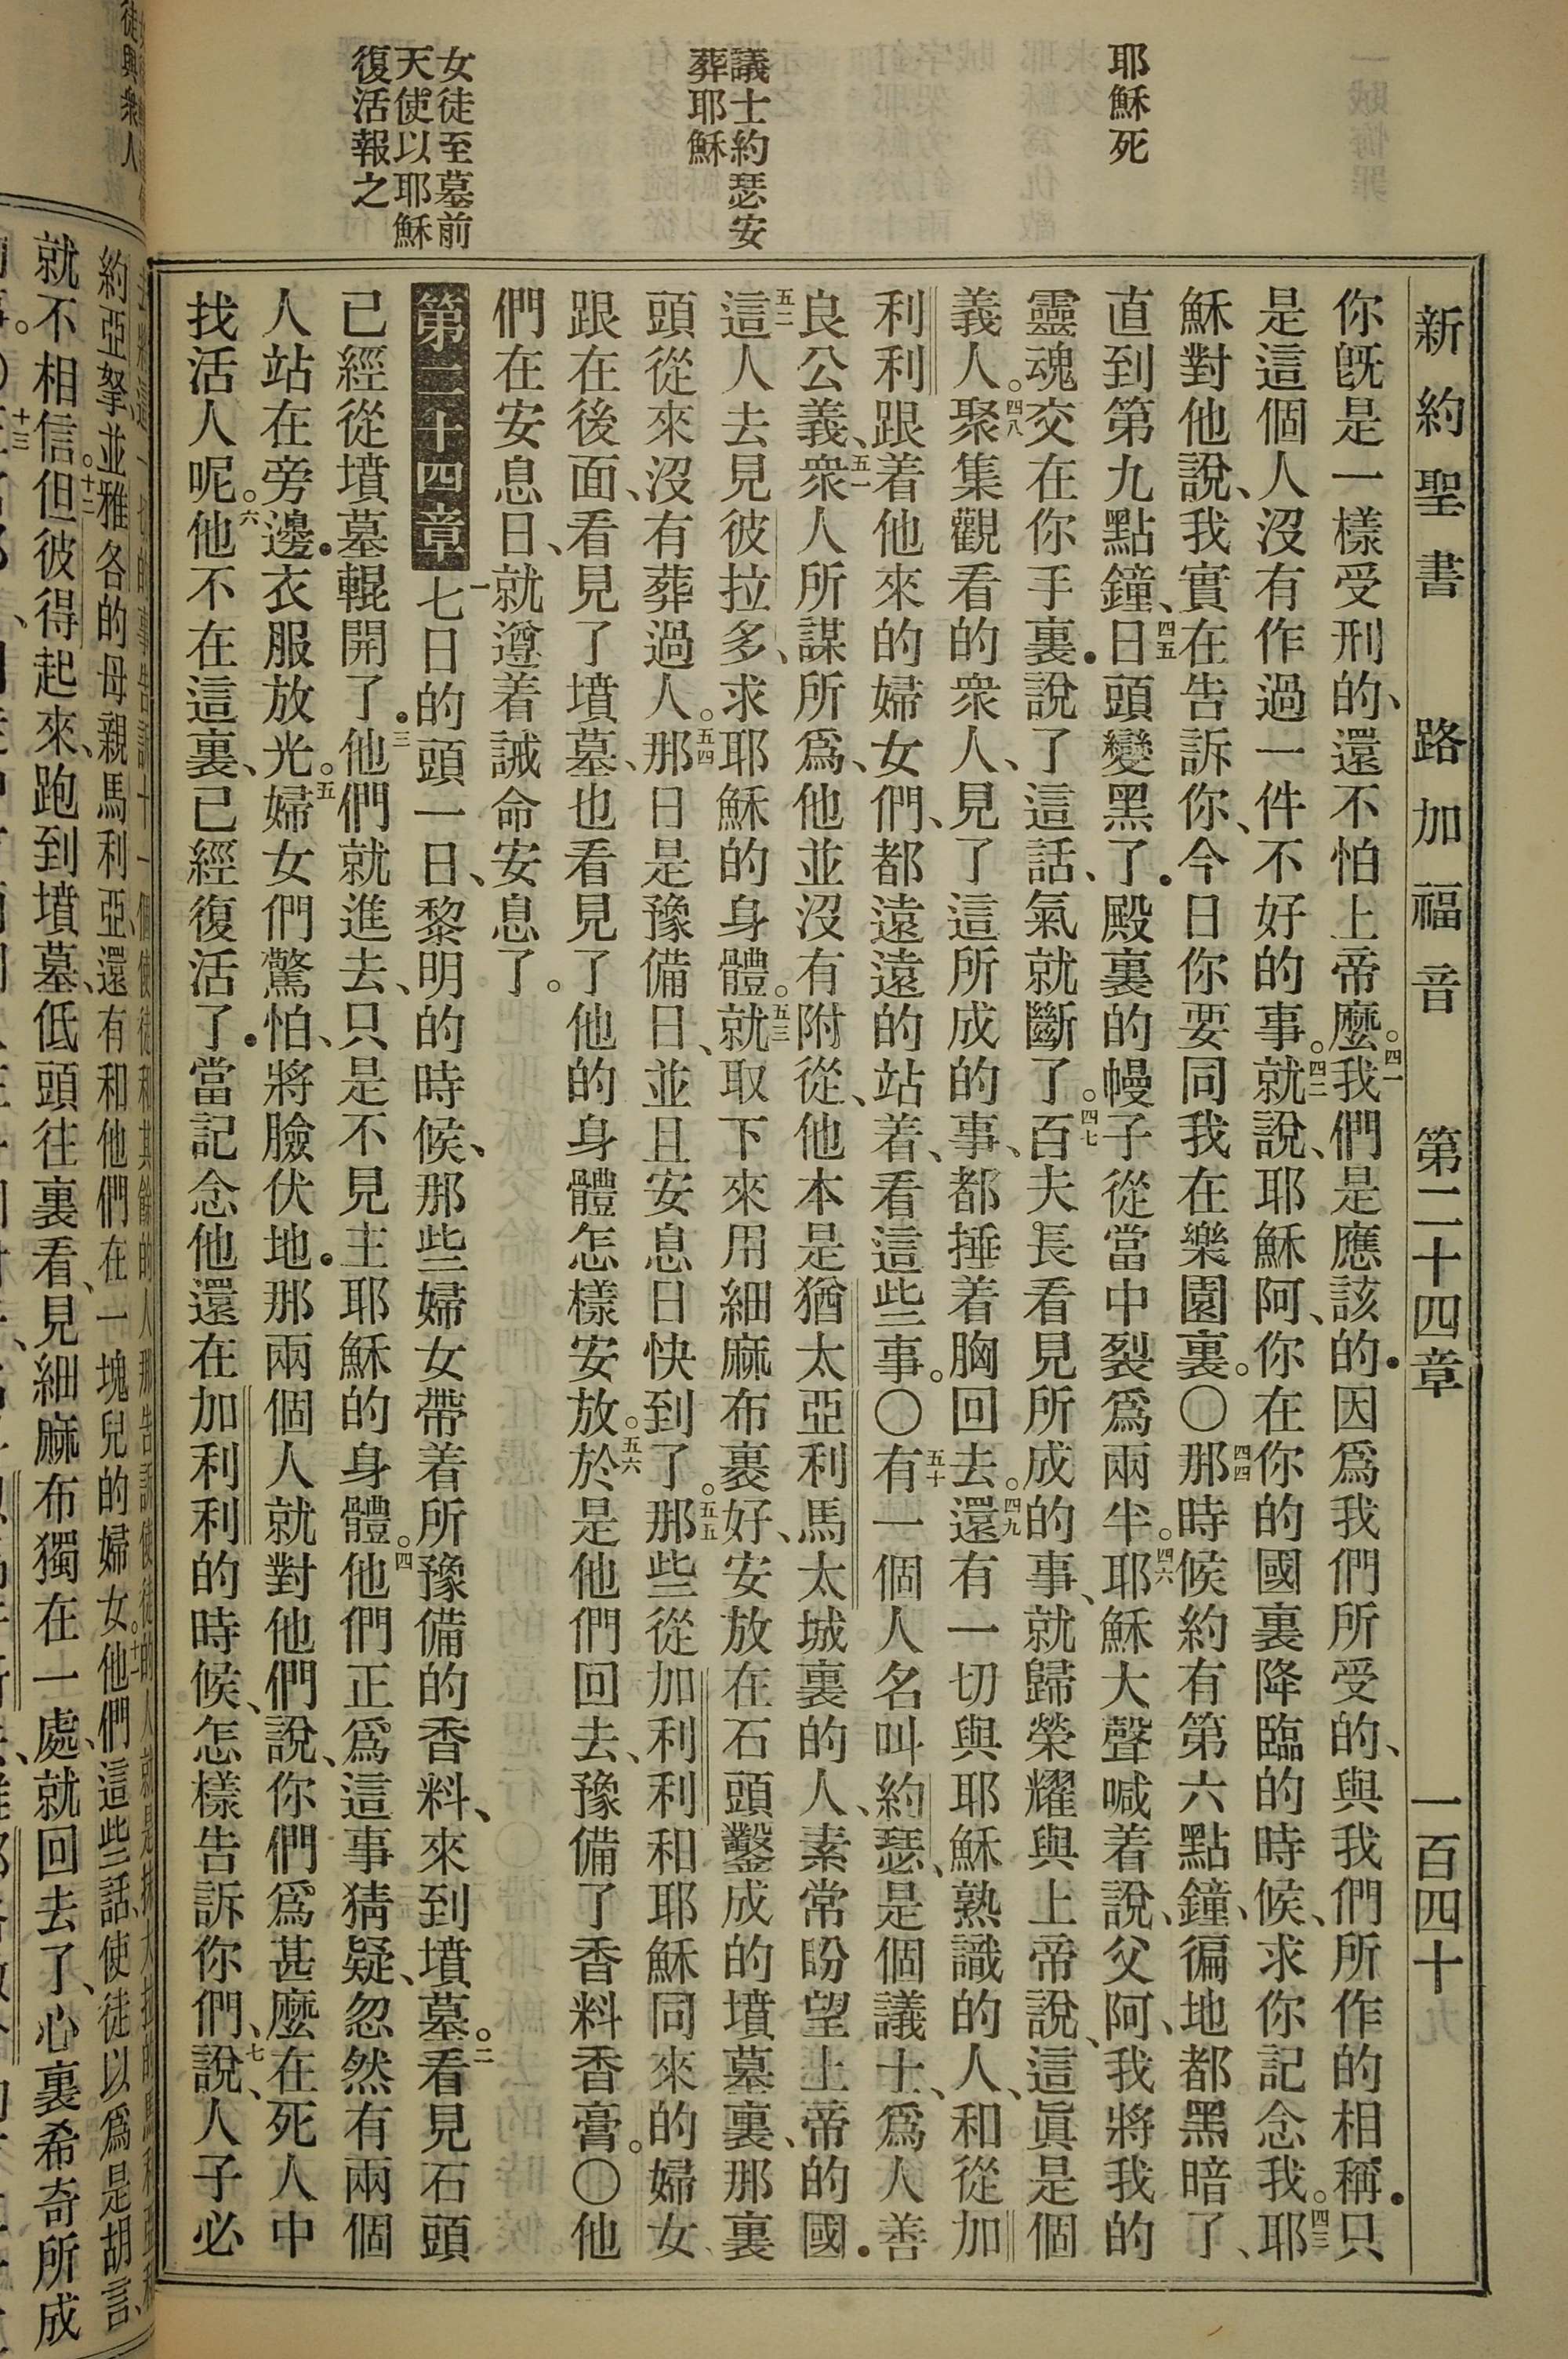 新約聖書 路加福音 第二十四章 一百四十
耶穌死
議士約瑟安
葬耶穌
女徒至墓前
天使以耶穌
復活報之
你旣是一樣受刑的、還不怕上帝麼。四一我們是應該的．因爲我們所受的、與我們所作的相稱．只
是這個人沒有作過一件不好的事。四二就說、耶穌阿、你在你的國裏降臨的時候、求你記念我。四三耶
穌對他說、我實在告訴你、今日你要同我在樂園裏。〇四四那時候約有第六點鐘、徧地都黑暗了、
直到第九點鐘、四五日頭變黑了．殿裏的幔子從當中裂爲兩半。四六耶穌大聲喊着說、父阿、我將我的
靈魂交在你手裏．說了這話、氣就斷了。四七百夫長看見所成的事、就歸榮耀與上帝說、這眞是個
義人。四八聚集觀看的衆人、見了這所成的事、都捶着胸回去。四九還有一切與耶穌熟識的人、和從加
利利跟着他來的婦女們、都遠遠的站着、看這些事。〇五十有一個人名叫約瑟、是個議士、爲人善
良公義、五一衆人所謀所爲、他並沒有附從、他本是猶太亞利馬太城裏的人、素常盼望上帝的國．
五二這人去見彼拉多、求耶穌的身體。五三就取下來用細麻布裹好、安放在石頭鑿成的墳墓裏、那裏
頭從來沒有葬過人。五四那日是豫備日、並且安息日快到了。五五那些從加利利和耶穌同來的婦女
跟在後面、看見了墳墓、也看見了他的身體怎樣安放。五六於是他們回去、豫備了香料香膏。〇他
們在安息日、就遵着誡命安息了。
第二十四章 一七日的頭一日、黎明的時候、那些婦女帶着所豫備的香料、來到墳墓。二看見石頭
已經從墳墓輥開了．三他們就進去、只是不見主耶穌的身體。四他們正爲這事猜疑、忽然有兩個
人站在旁邊．衣服放光。五婦女們驚怕、將臉伏地．那兩個人就對他們說、你們爲甚麼在死人中
找活人呢。六他不在這裏、已經復活了．當記念他還在加利利的時候、怎樣告訴你們、七說、人子必
徒與衆人
約亞拏、並雅各的母親馬利亞、還有和他們在一塊兒的婦女。十一他們這些話、使徒以爲是胡言、
就不相信。十二但彼得起來、跑到墳墓、低頭往裏看、見細麻布獨在一處、就回去了、心裏希奇所成